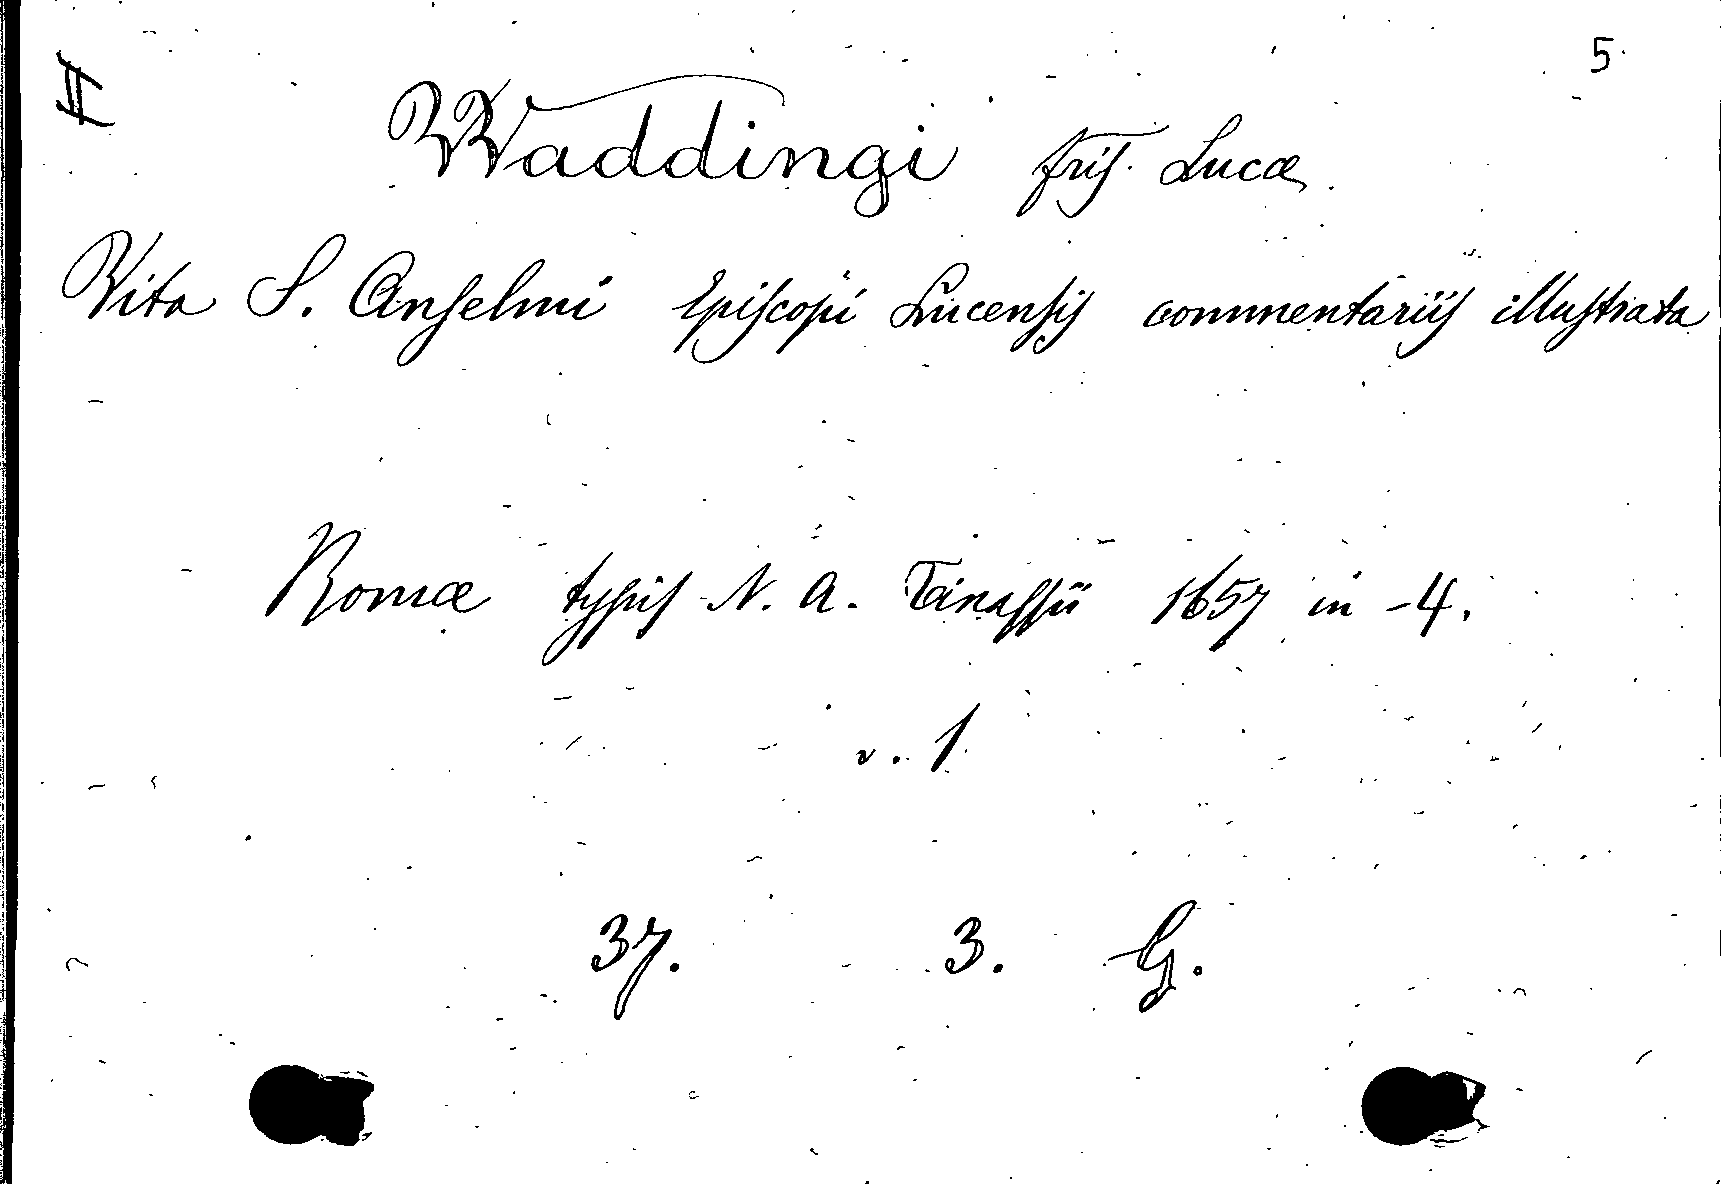 II
5
Waddingi fris. Lucæ
Vita S. Anselmi Episcopi Lucensis commentariis illustrata
Romæ typis N. A. Tinassii 1657 in-4.
v. 1
37. 3. G.